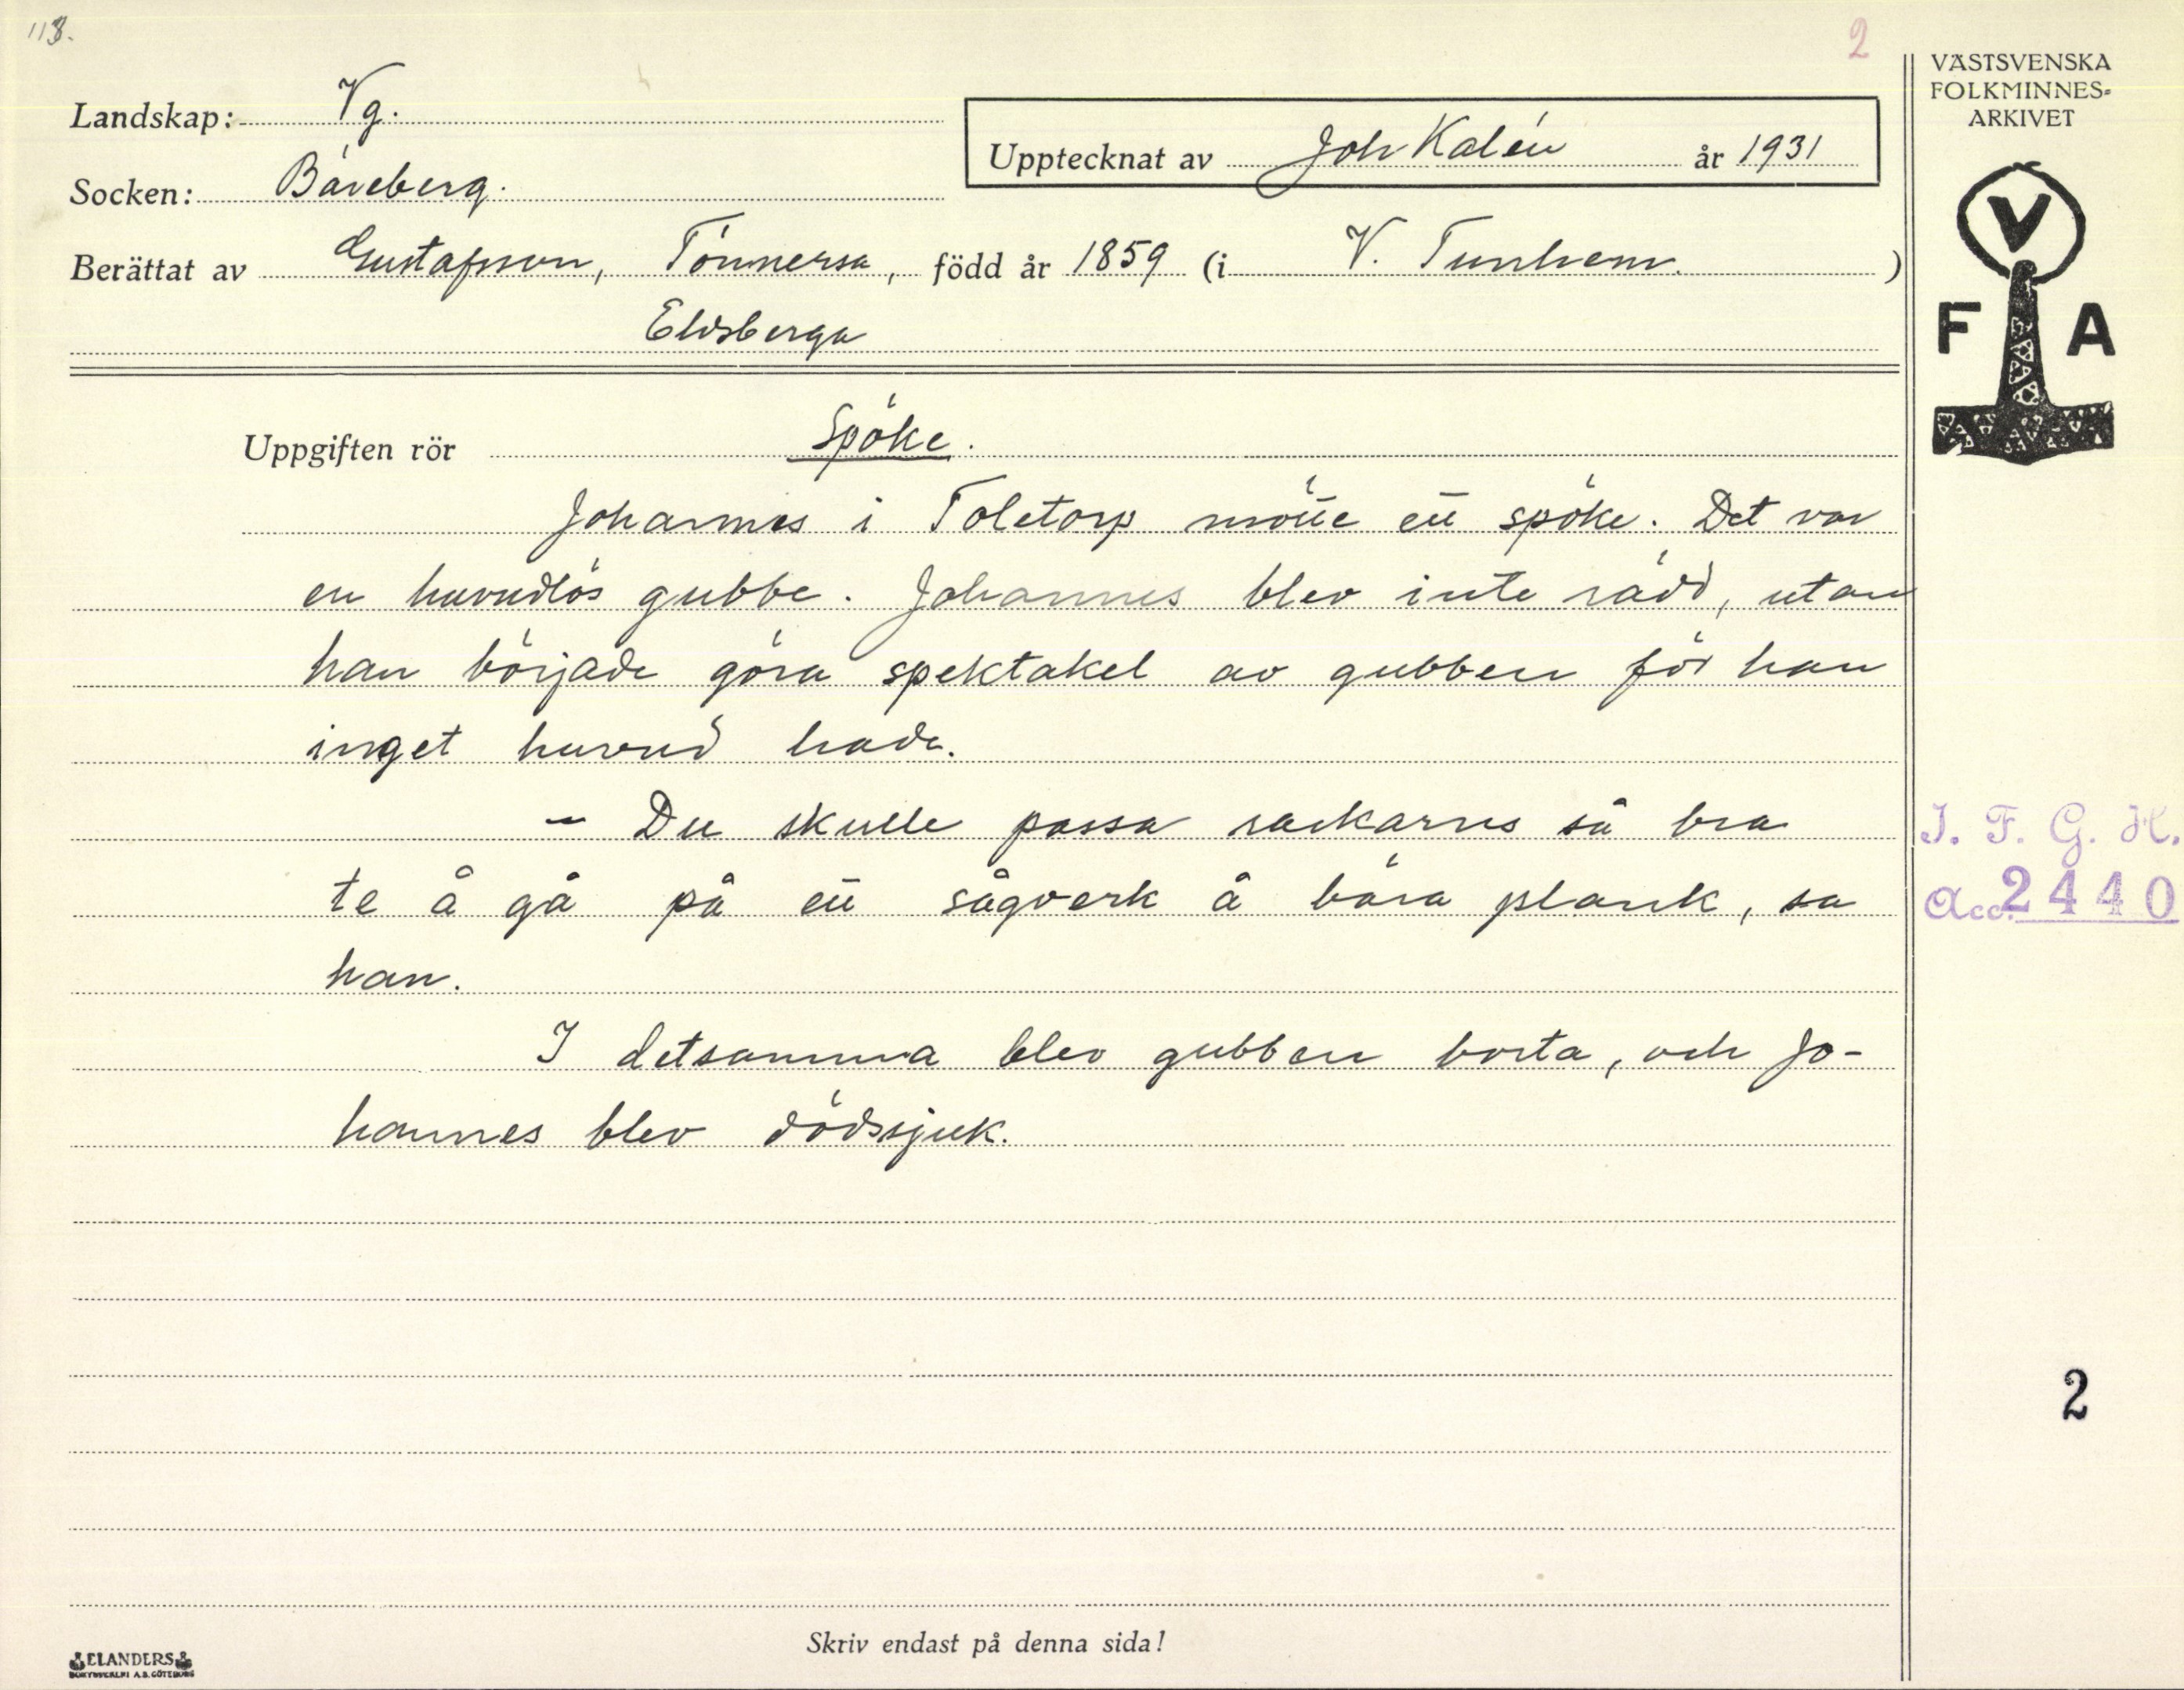 113.
2
VÄSTSVENSKA
FOLKMINNES-
ARKIVET
Landskap: Vg.
Upptecknat av Joh Kalén år 1931
Socken: Bäreberg.
Berättat av Gustafsson, Tönnersa, född år 1859 (i V. Tunhem.)
Eldsberga
V
F A
Uppgiften rör Spöke.
Johannes i Toletorp mötte ett spöke. Det var
en huvudlös gubbe. Johannes blev inte rädd, utan
han började göra spektakel av gubben för han
inget huvud hade.
– Du skulle passa rackarns så bra
te å gå på ett sågverk å bära plank, sa
han.
I detsamma blev gubben borta, och Jo-
hannes blev dödssjuk.
I. F. G. H.
Acc. 2440
2
Skriv endast på denna sida!
ELANDERS
BOKTRYCKERI A.B. GÖTEBORG